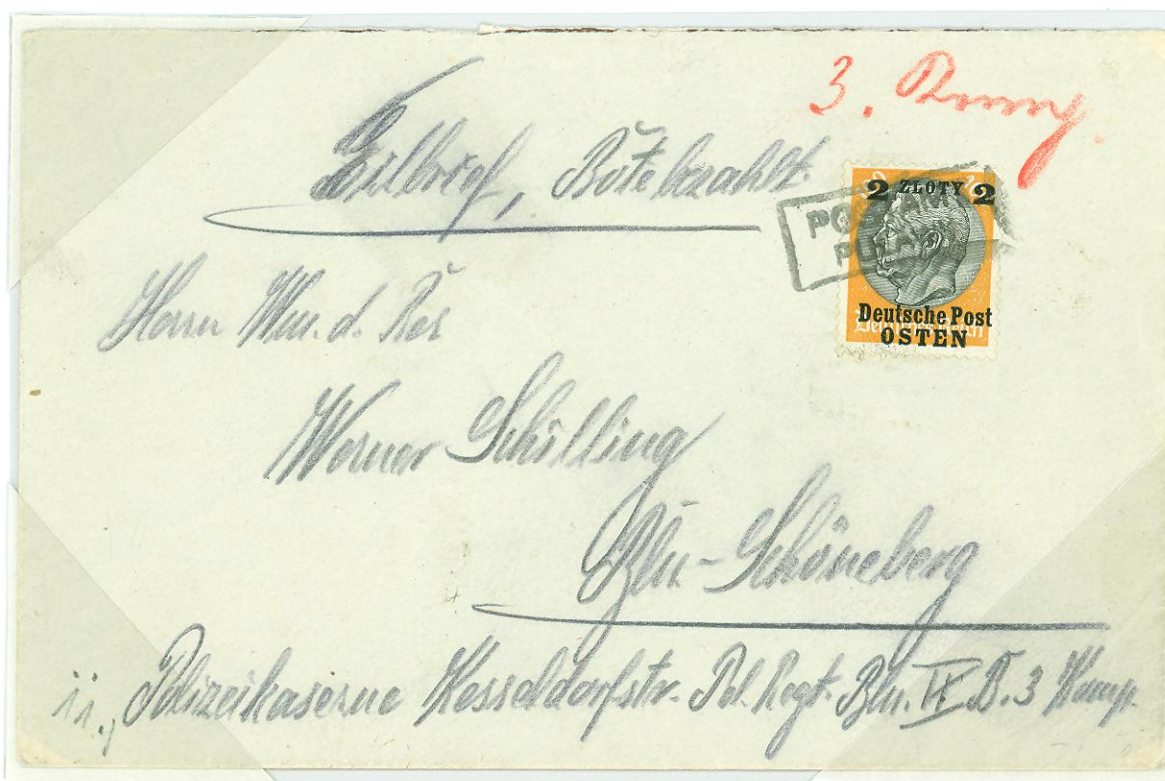 3. Komp.
Eilbrief, Bote bezahlt.
2 ZLOTY 2
Deutsche Post
OSTEN
Herrn Wm. d. Res
Werner Schilling
Bln-Schöneberg
Polizeikaserne Kesseldorfstr. Pol. Regt. Bln. II B. 3 Komp.